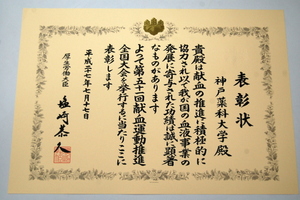 表彰状
神戸薬科大学殿
貴殿は献血の推進に積極的に
協力され以て我が国の血液事業の
発展に寄与された功績は誠に顕著
なものがあります
よって第五十一回献血運動推進
全国大会を挙行するに当たりここに
表彰します
平成二十七年七月十七日
厚生労働大臣
塩崎恭久